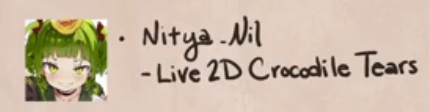 • Nitya_Nil
- Live 2D Crocodile Tears